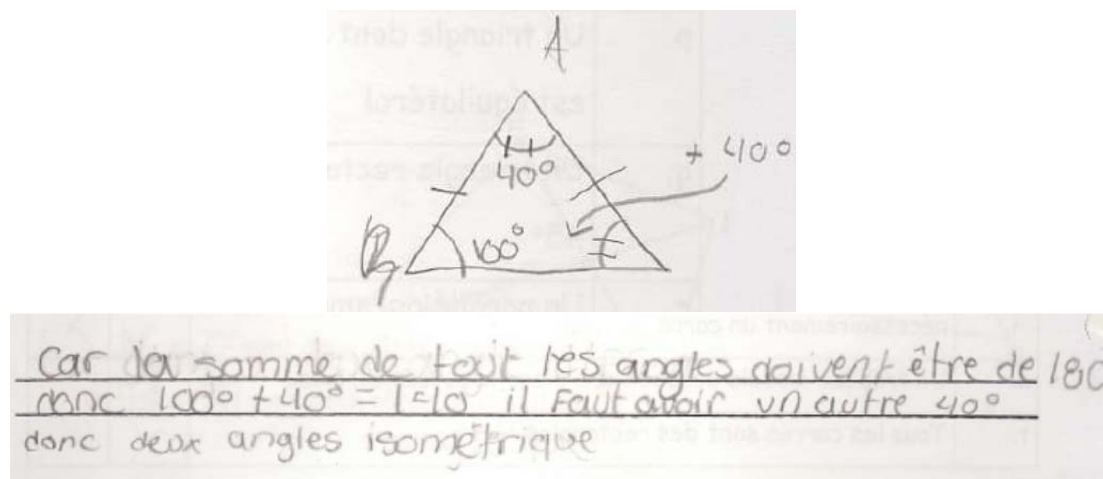 A
40°
+ 40°
100°
B
Car la somme de tout les angles doivent être de 180
donc 100° + 40° = 140 il faut avoir un autre 40°
donc deux angles isométrique